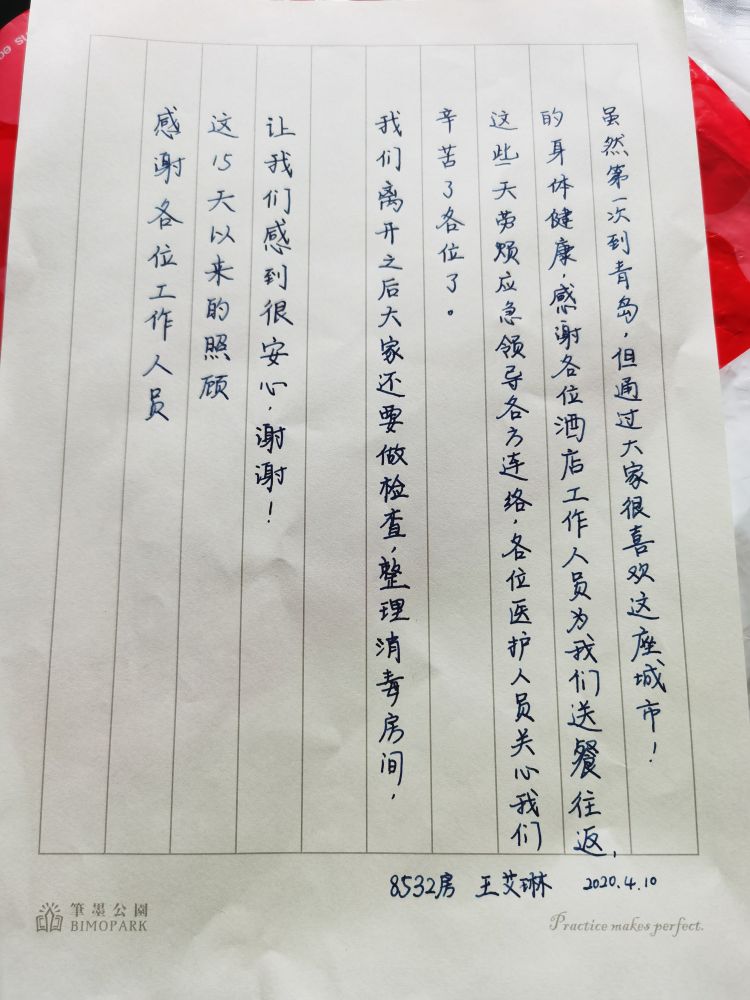 感谢各位工作人员
这15天以来的照顾
让我们感到很安心，谢谢！
我们离开之后大家还要做检查，整理消毒房间，
辛苦了各位了。
这些天劳烦应急领导各方连络，各位医护人员关心我们
的身体健康，感谢各位酒店工作人员为我们送餐往返，
虽然第一次到青岛，但通过大家很喜欢这座城市！
8532房 王艾琳 2020.4.10
筆墨公園
BIMOPARK
Practice makes perfect.